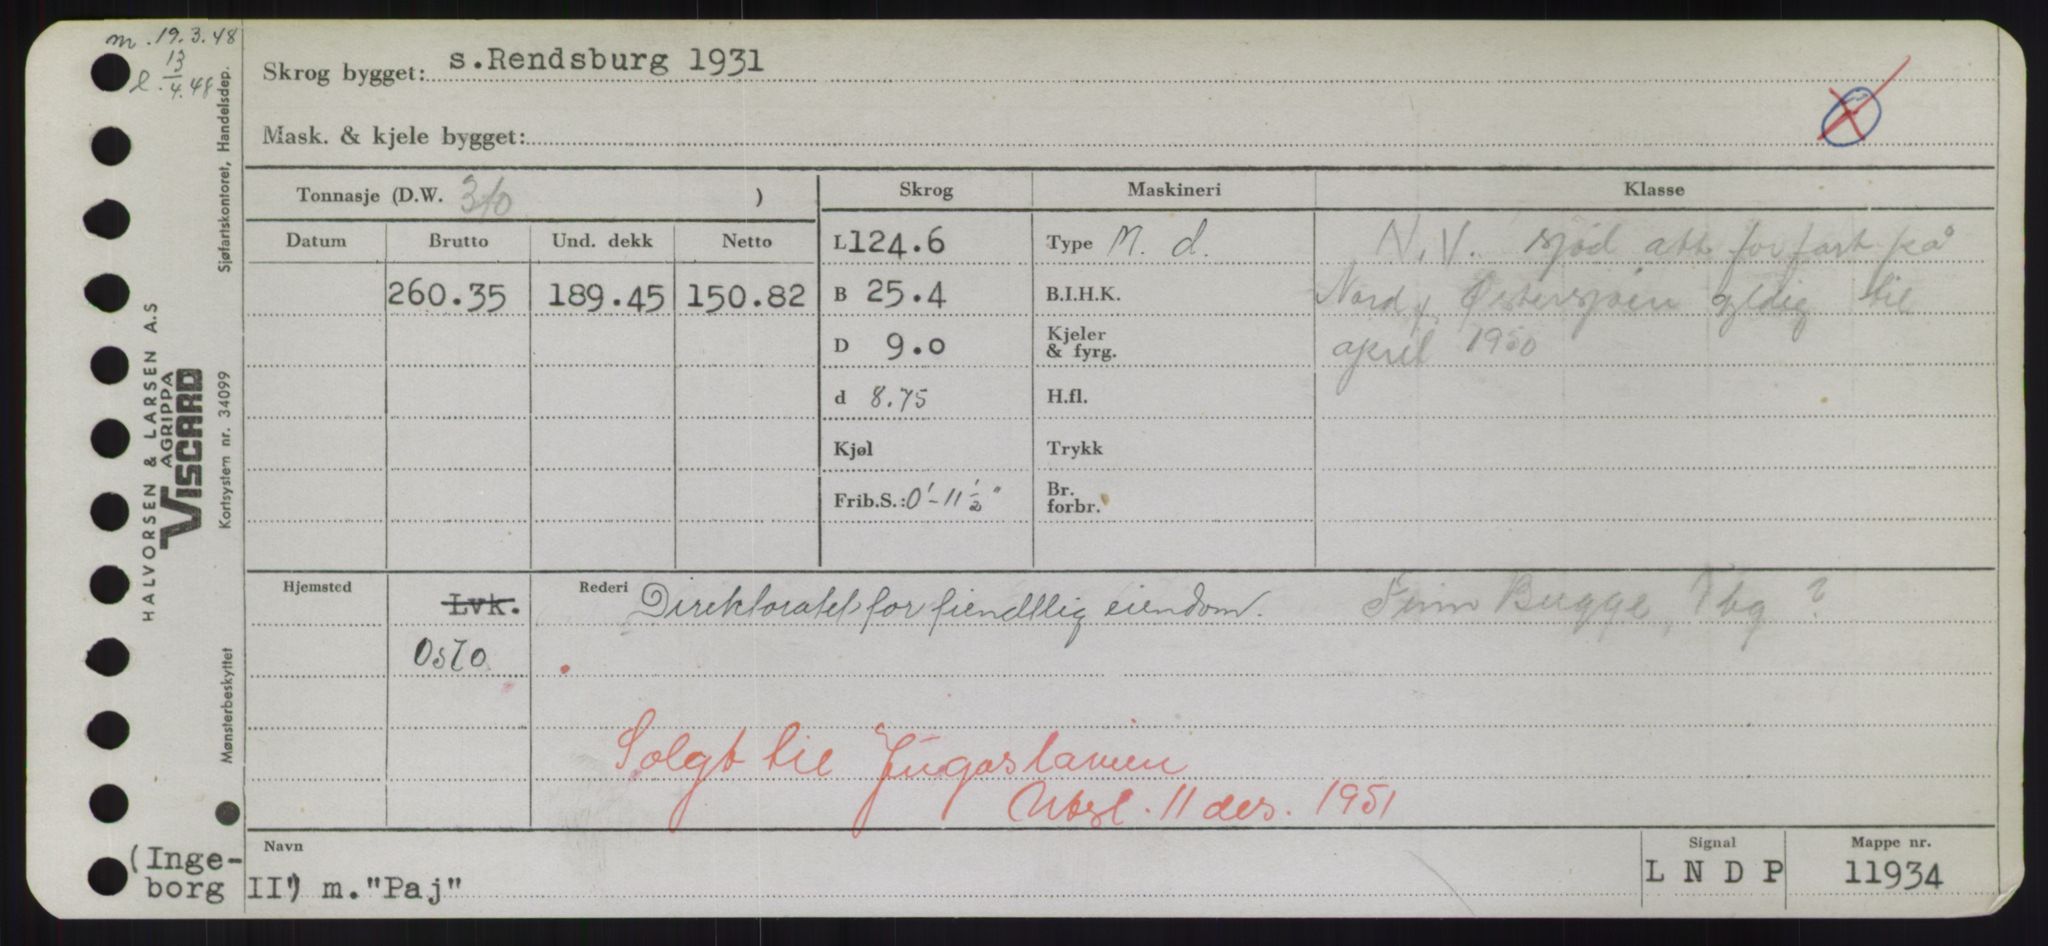 m. 19.3.48
l. 13/4.48
Skrog bygget: s.Rendsburg 1931
Mask. & kjele bygget:
Tonnasje (D.W. 310 )
Skrog
Maskineri
Klasse
Datum
Brutto
Und. dekk
Netto
260.35
189.45
150.82
L 124.6
B 25.4
D 9.0
d 8.75
Kjøl
Frib.S.: 0'-11 1/2"
Type M. d.
B.I.H.K.
Kjeler
& fyrg.
H.fl.
Trykk
Br.
forbr.
N.V. sjød att for fart på
Nord & Østersjøen gyldig til
april 1950
Hjemsted
Lvk.
Oslo
Rederi
Direktoratet for fiendtlig eiendom.
Finn Bugge, Tbg ?
Solgt til Jugoslavien
Utsl. 11 des. 1951
Navn
(Inge-
borg II") m."Paj"
Signal
LNDP
Mappe nr.
11934
HALVORSEN & LARSEN A.S
AGRIPPA
VISCARD
Sjøfartskontoret, Handelsdep.
Kortsystem nr. 34099
Mønsterbeskyttet